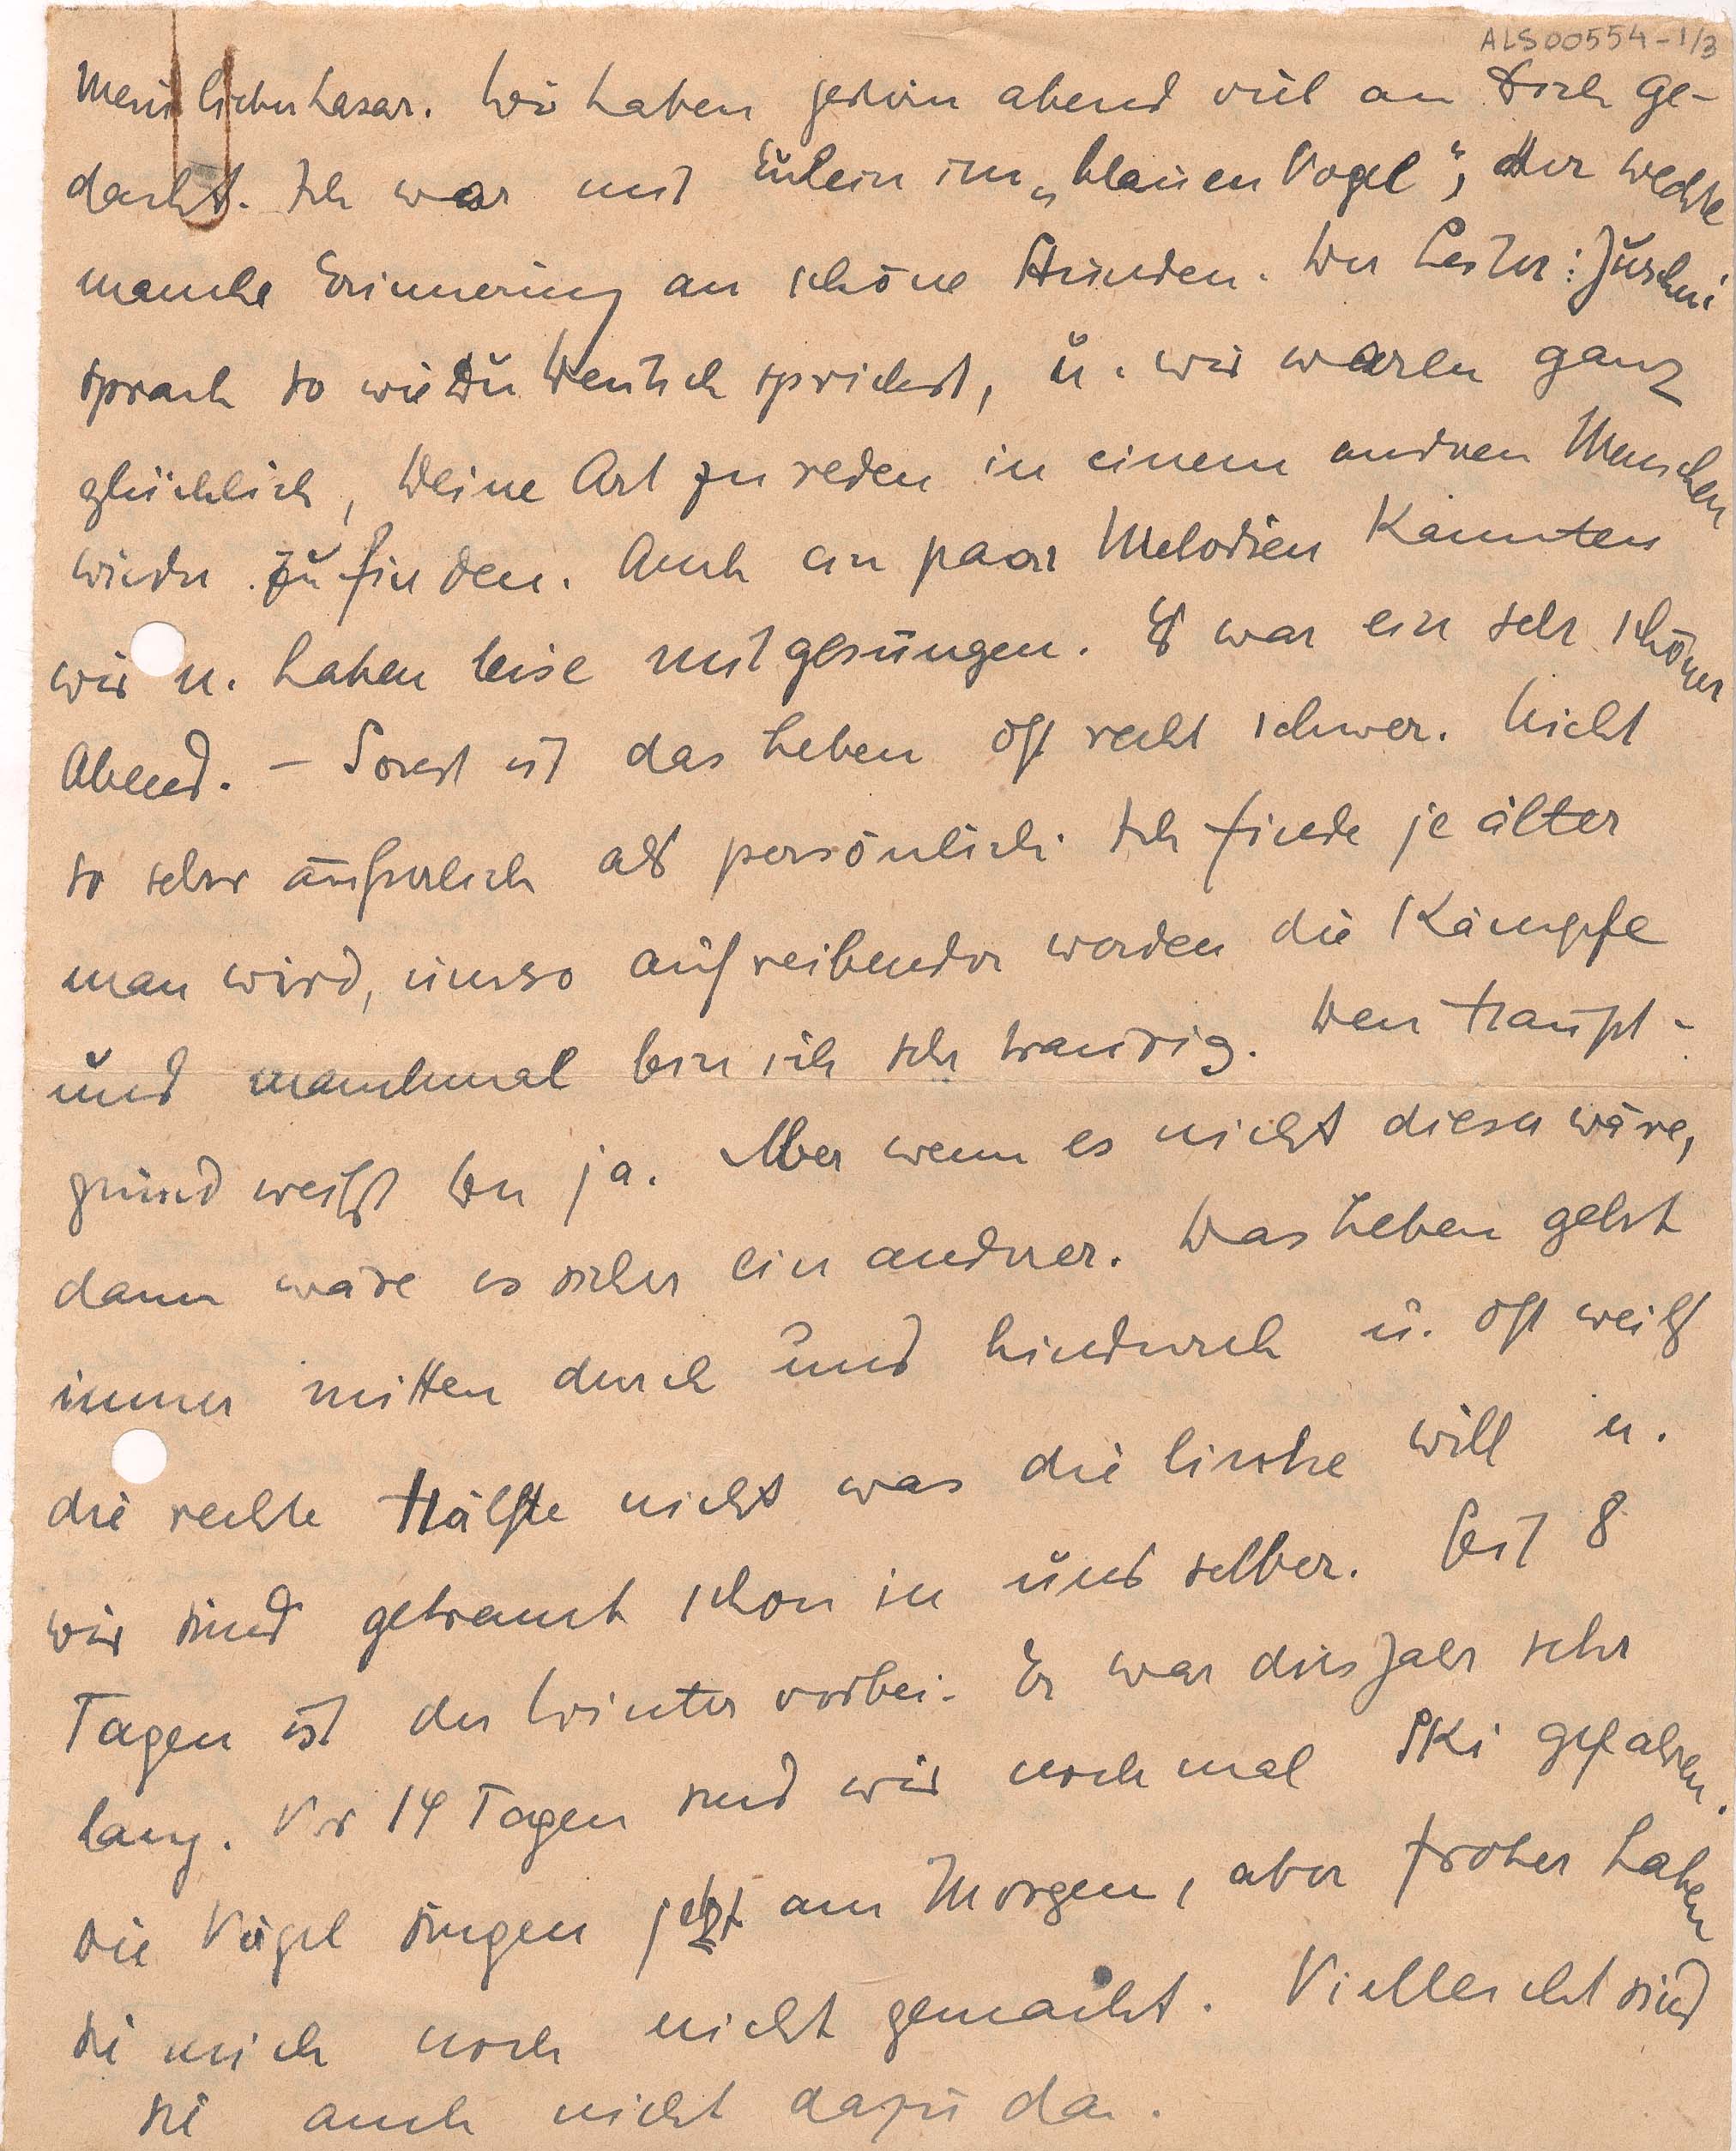 ALS00554-1/3
Mein lieber Lasar. Wir haben gestern abend viel an Dich ge-
dacht. Ich war mit Eulein im „blauen Vogel“, der weckte
manche Erinnerung an schöne Stunden. Der Leiter: Jushni
sprach so wie Du Deutsch sprichst, u. wir waren ganz
glücklich, Deine Art zu reden in einem andren Menschen
wieder zu finden. Auch ein paar Melodien kannten
wir u. haben leise mitgesungen. Es war ein sehr schöner
Abend. – Sonst ist das Leben oft recht schwer. Nicht
so sehr äußerlich als persönlich. Ich finde je älter
man wird, umso aufreibender werden die Kämpfe
und manchmal bin ich sehr traurig. Den Haupt-
grund weißt Du ja. Aber wenn es nicht dieser wäre,
dann wäre es sicher ein andrer. Das Leben geht
immer mitten durch und hindurch u. oft weiß
die rechte Hälfte nicht was die linke will u.
wir sind getrennt schon in uns selber. Seit 8
Tagen ist der Winter vorbei. Er war dies Jahr sehr
lang. Vor 14 Tagen sind wir noch mal Ski gefahren.
Die Vögel singen jetzt am Morgen, aber froher haben
sie mich noch nicht gemacht. Vielleicht sind
sie auch nicht dazu da.